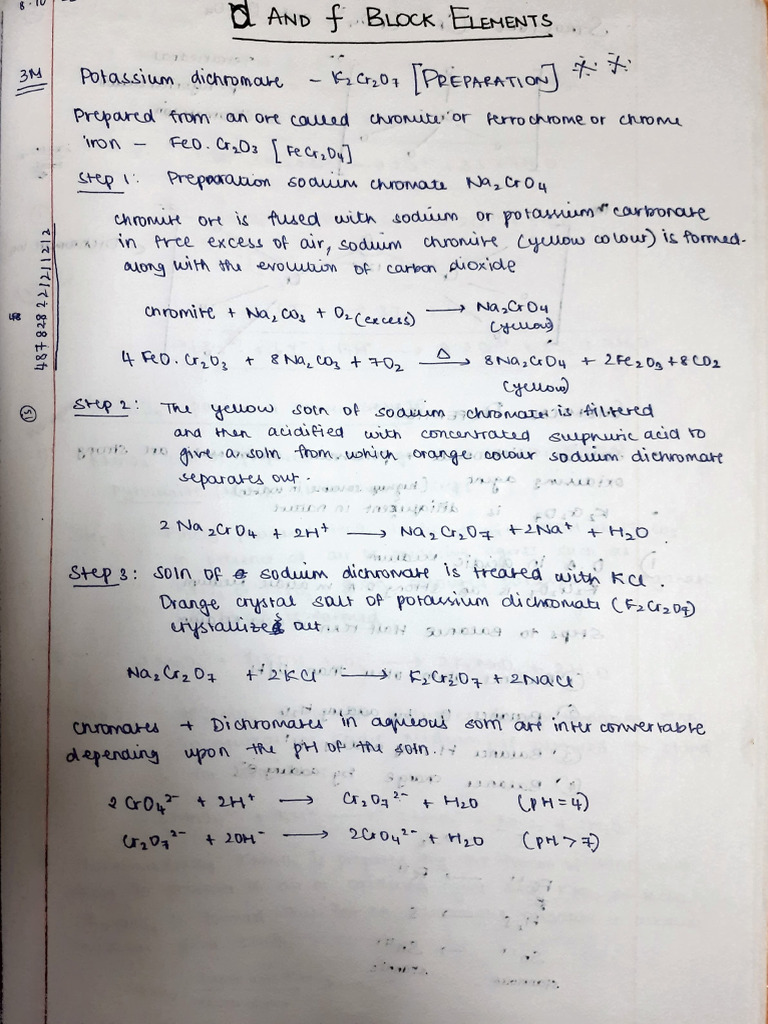 8.10
d AND f BLOCK ELEMENTS
3M Potassium dichromate - K2Cr2O7 [PREPARATION]
Prepared from an ore called chromite or ferrochrome or chrome
iron - FeO.Cr2O3 [FeCr2O4]
Step 1: Preparation sodium chromate Na2CrO4
chromite ore is fused with sodium or potassium carbonate
in free excess of air, sodium chromite (yellow colour) is formed.
along with the evolution of carbon dioxide
chromite + Na2CO3 + O2 (excess) → Na2CrO4
(yellow)
4 FeO.Cr2O3 + 8Na2CO3 + 7O2 →Δ 8Na2CrO4 + 2Fe2O3 + 8CO2
(yellow)
Step 2: The yellow soln of sodium chromate is filtered
and then acidified with concentrated sulphuric acid to
give a soln from which orange colour sodium dichromate
separates out.
2 Na2CrO4 + 2H+ → Na2Cr2O7 + 2Na+ + H2O
Step 3: Soln of sodium dichromate is treated with KCl.
Orange crystal salt of potassium dichromate (K2Cr2O7)
crystallizes out.
Na2Cr2O7 + 2KCl → K2Cr2O7 + 2NaCl
Chromates + Dichromates in aqueous soln are inter convertable
depending upon the pH of the soln.
2CrO4²⁻ + 2H+ → Cr2O7²⁻ + H2O (pH=4)
Cr2O7²⁻ + 2OH⁻ → 2CrO4²⁻ + H2O (pH>7)